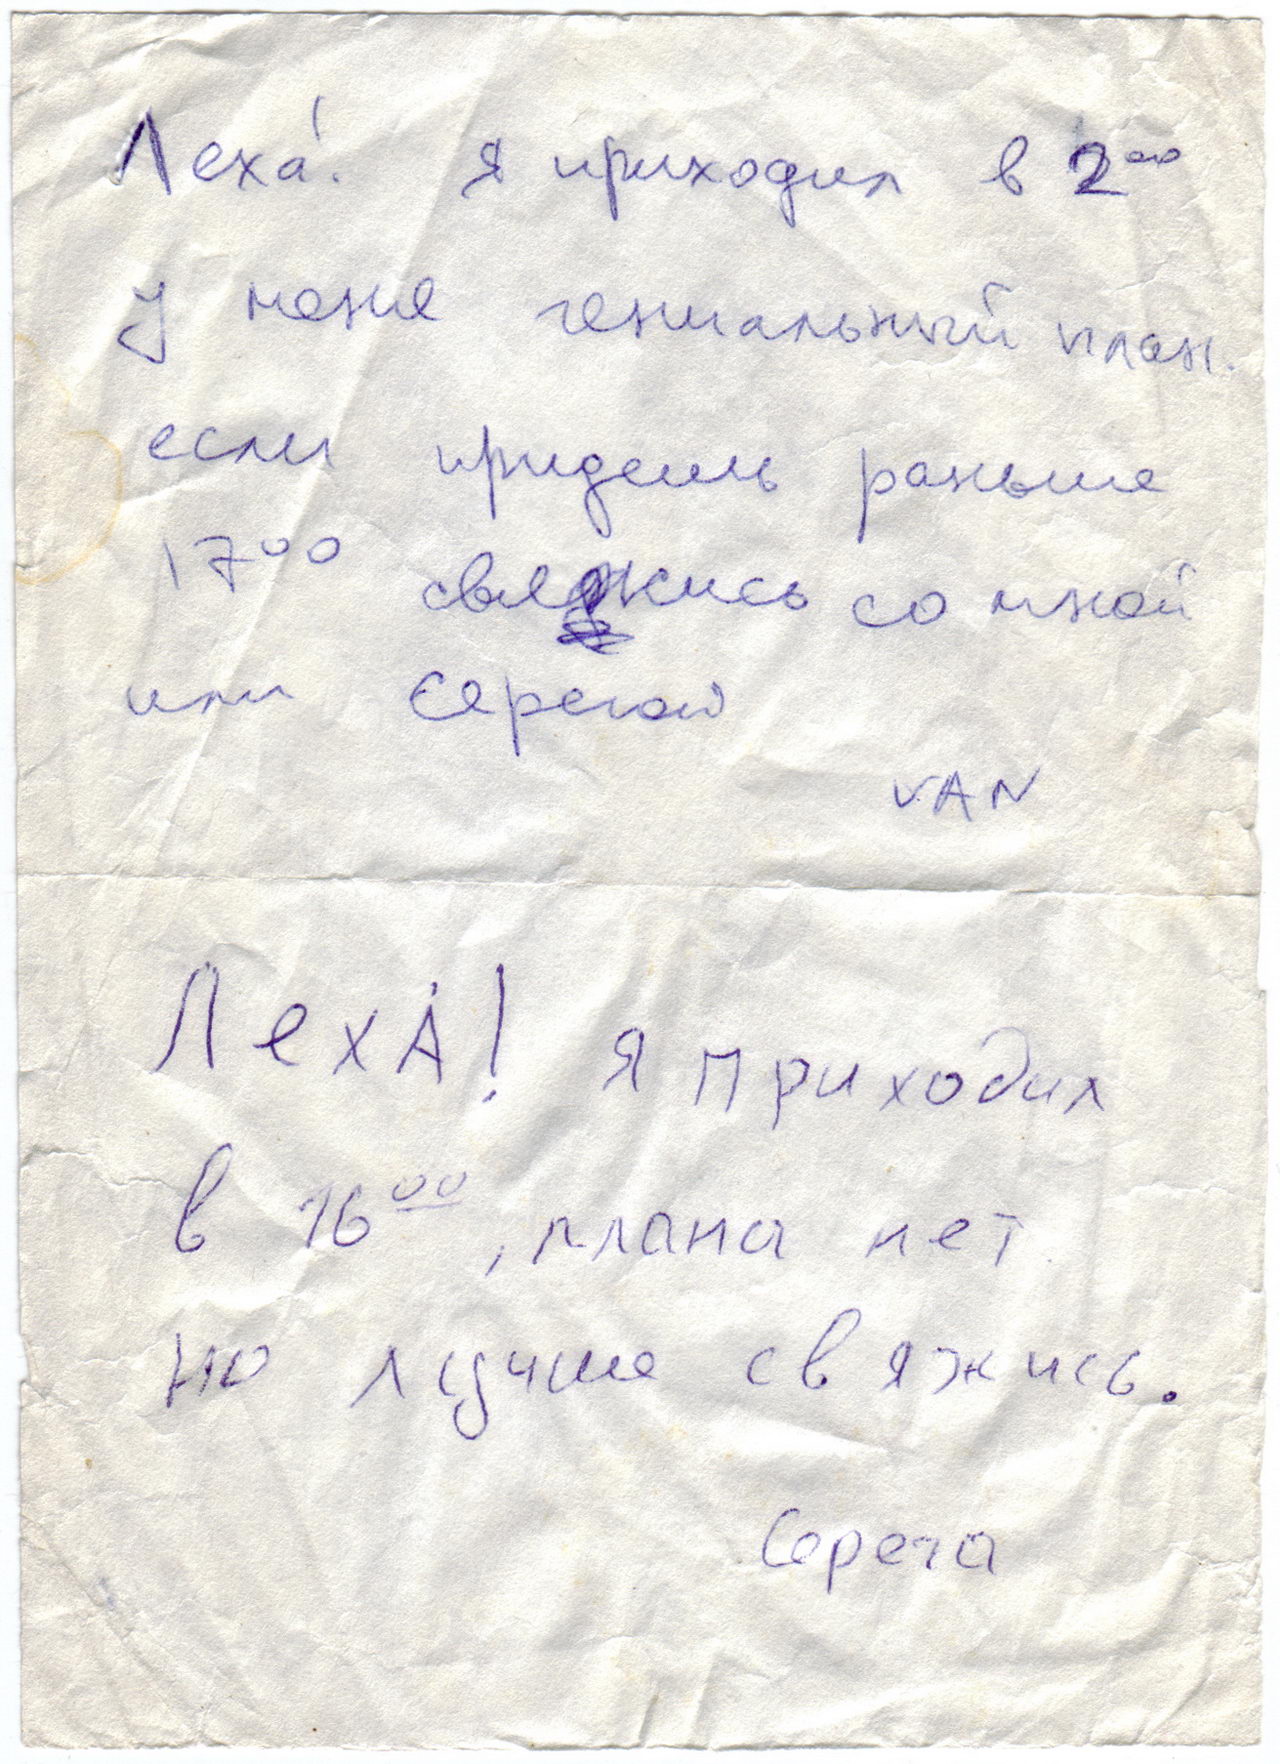 Леха! я приходил в 2⁰⁰
у меня гениальный план.
если придешь раньше
17⁰⁰ свяжись со мной
или Серегой
VAN
ЛехА! я приходил
в 16⁰⁰, плана нет
но лучше свяжись.
Серега